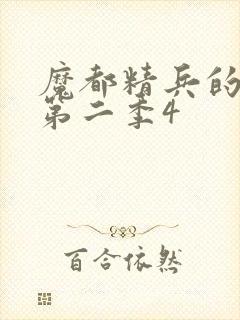 魔都精兵的
第二季4
百合依然